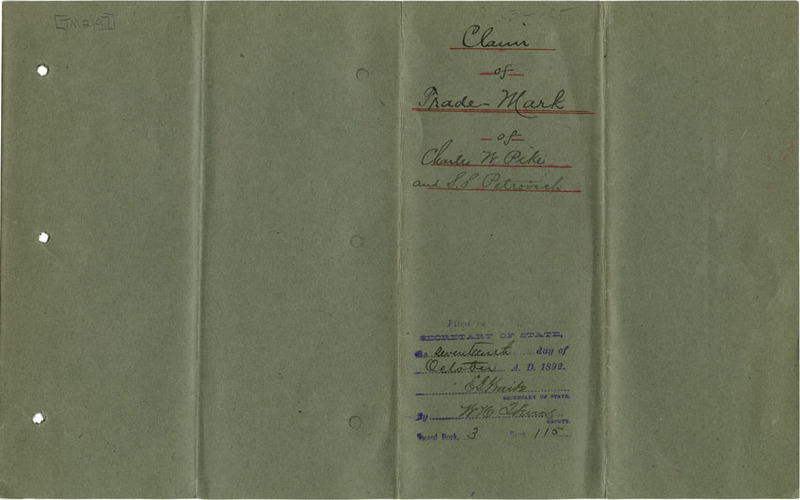 Claim
of
Trade-Mark
of
Charles W Pike
and S. S. Petrovich
Filed in
SECRETARY OF STATE,
seventeenth day of
October A. D. 1892.
SECRETARY OF STATE.
By
DEPUTY.
Record Book, 3 Page 115